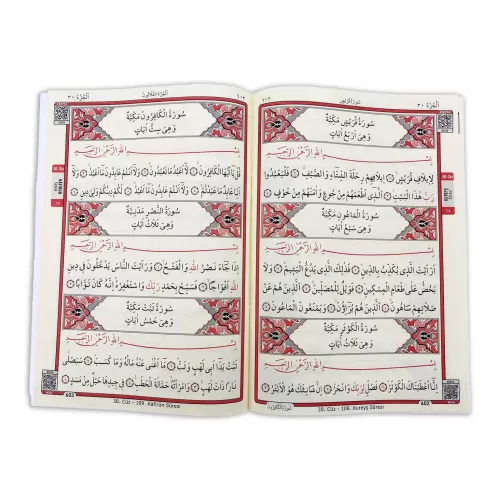 اَلْجُزْءُ ٣٠ سُورَةُ قُرَيْشٍ ٦٠٢
سُورَةُ قُرَيْشٍ مَكِّيَّةٌ
وَهِيَ اَرْبَعُ اٰيَاتٍ
بِسْمِ اللهِ الرَّحْمٰنِ الرَّحِيمِ
لِاِيلَافِ قُرَيْشٍ ۝ اِيلَافِهِمْ رِحْلَةَ الشِّتَاءِ وَالصَّيْفِ ۝ فَلْيَعْبُدُوا
رَبَّ هٰذَا الْبَيْتِ ۝ اَلَّذِي اَطْعَمَهُمْ مِنْ جُوعٍ وَاٰمَنَهُمْ مِنْ خَوْفٍ ۝
سُورَةُ الْمَاعُونِ مَكِّيَّةٌ
وَهِيَ سَبْعُ اٰيَاتٍ
بِسْمِ اللهِ الرَّحْمٰنِ الرَّحِيمِ
اَرَاَيْتَ الَّذِي يُكَذِّبُ بِالدِّينِ ۝ فَذٰلِكَ الَّذِي يَدُعُّ الْيَتِيمَ ۝ وَلَا
يَحُضُّ عَلٰى طَعَامِ الْمِسْكِينِ ۝ فَوَيْلٌ لِلْمُصَلِّينَ ۝ اَلَّذِينَ هُمْ عَنْ
صَلَاتِهِمْ سَاهُونَ ۝ اَلَّذِينَ هُمْ يُرَاؤُنَ ۝ وَيَمْنَعُونَ الْمَاعُونَ ۝
سُورَةُ الْكَوْثَرِ مَكِّيَّةٌ
وَهِيَ ثَلَاثُ اٰيَاتٍ
بِسْمِ اللهِ الرَّحْمٰنِ الرَّحِيمِ
اِنَّا اَعْطَيْنَاكَ الْكَوْثَرَ ۝ فَصَلِّ لِرَبِّكَ وَانْحَرْ ۝ اِنَّ شَانِئَكَ هُوَ الْاَبْتَرُ ۝
602
30. Cüz - 106. Kureyş Sûresi
اَلْجُزْءُ الثَّلَاثُونَ ٦٠٣ اَلْجُزْءُ ٣٠
سُورَةُ الْكَافِرُونَ مَكِّيَّةٌ
وَهِيَ سِتُّ اٰيَاتٍ
بِسْمِ اللهِ الرَّحْمٰنِ الرَّحِيمِ
قُلْ يَا اَيُّهَا الْكَافِرُونَ ۝ لَا اَعْبُدُ مَا تَعْبُدُونَ ۝ وَلَا اَنْتُمْ عَابِدُونَ مَا اَعْبُدُ ۝ وَلَا
اَنَا عَابِدٌ مَا عَبَدْتُمْ ۝ وَلَا اَنْتُمْ عَابِدُونَ مَا اَعْبُدُ ۝ لَكُمْ دِينُكُمْ وَلِيَ دِينِ ۝
سُورَةُ النَّصْرِ مَدَنِيَّةٌ
وَهِيَ ثَلَاثُ اٰيَاتٍ
بِسْمِ اللهِ الرَّحْمٰنِ الرَّحِيمِ
اِذَا جَاءَ نَصْرُ اللهِ وَالْفَتْحُ ۝ وَرَاَيْتَ النَّاسَ يَدْخُلُونَ فِي دِينِ
اللهِ اَفْوَاجًا ۝ فَسَبِّحْ بِحَمْدِ رَبِّكَ وَاسْتَغْفِرْهُ اِنَّهُ كَانَ تَوَّابًا ۝
سُورَةُ تَبَّتْ مَكِّيَّةٌ
وَهِيَ خَمْسُ اٰيَاتٍ
بِسْمِ اللهِ الرَّحْمٰنِ الرَّحِيمِ
تَبَّتْ يَدَا اَبِي لَهَبٍ وَتَبَّ ۝ مَا اَغْنٰى عَنْهُ مَالُهُ وَمَا كَسَبَ ۝ سَيَصْلٰى
نَارًا ذَاتَ لَهَبٍ ۝ وَامْرَاَتُهُ حَمَّالَةَ الْحَطَبِ ۝ فِي جِيدِهَا حَبْلٌ مِنْ مَسَدٍ ۝
603
30. Cüz - 109. Kâfirûn Sûresi